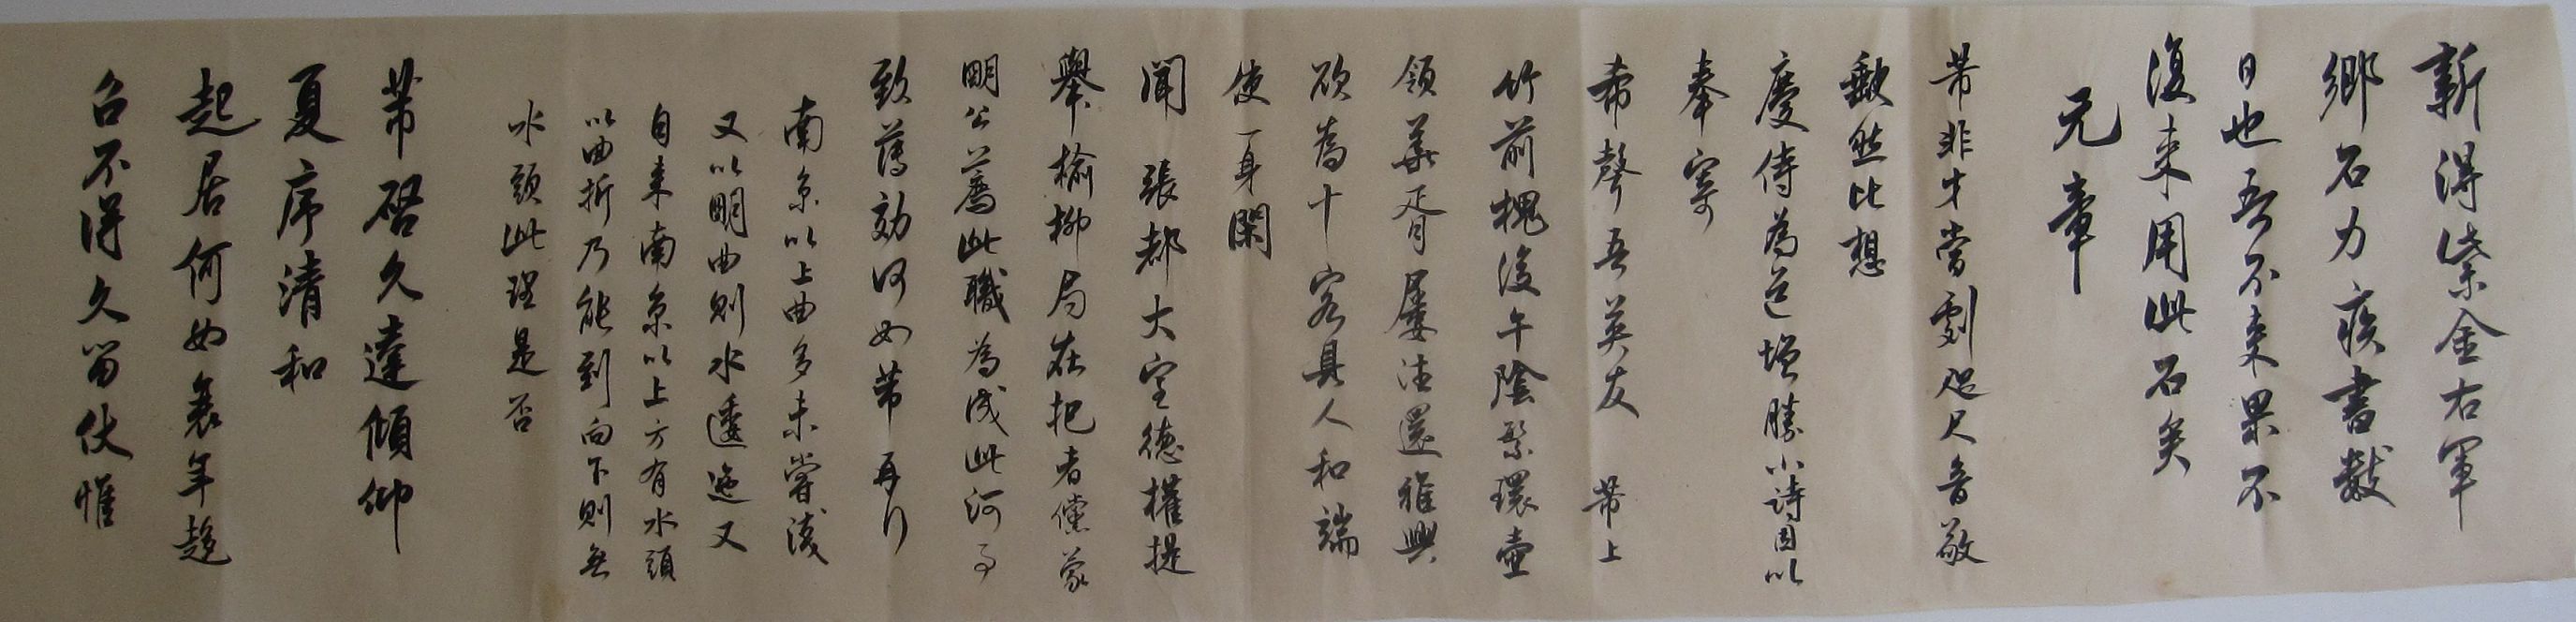 新得紫金右軍
鄉石力疾書數
日也吾不来果不
復来用此石矣
元章
芾非才當劇咫尺音敬
缺然比想
慶侍為道增勝小詩因以
奉寄
希聲吾英友 芾上
竹前槐後午陰繁壺
領華胥屢往還雅興
欲為十客具人和端
使一身閑
聞 張都大宣德權提
舉榆柳局在杞者儻蒙
明公薦此職為成此河事
致薄効何如芾再行
南京以上曲多未嘗淺
又以明曲則水逶迤又
自来南京以上方有水頭
以曲折乃能到向下則無
水頭此理是否
芾啓久違傾仰
夏序清和
起居何如衰年趨
召不得久留伏惟